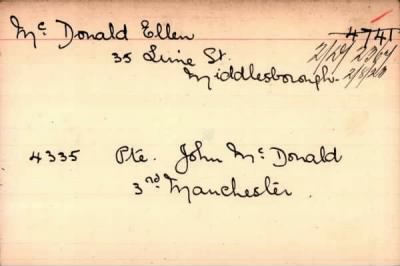 Mc Donald Ellen
4741
35 Lime St.
Middlesborough
2/8/20
4335 Pte. John Mc Donald
3rd Manchester.